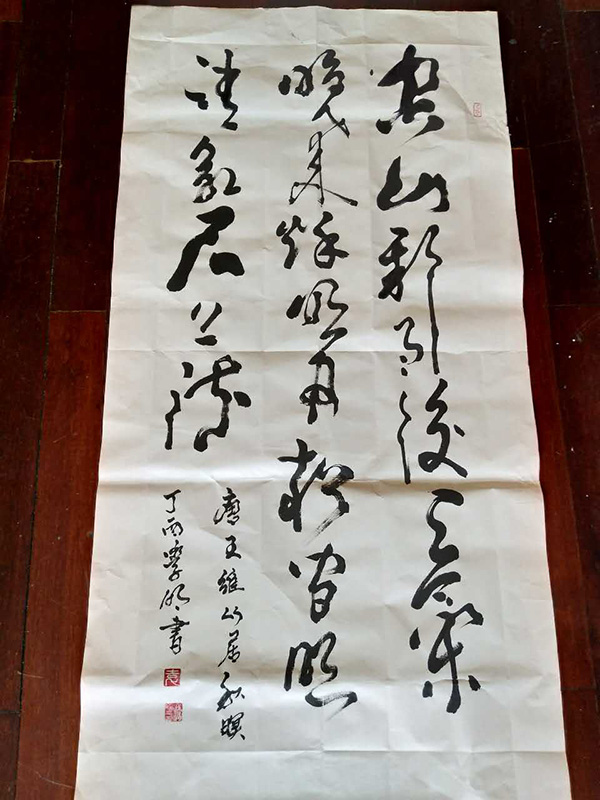 空山新雨後天氣
晚来秋明月松間照
清泉石上流
唐王維山居秋暝
丁酉學明書
袁